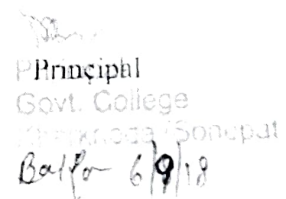 Principal
Govt. College
Kharkhoda (Sonepat
6/9/18